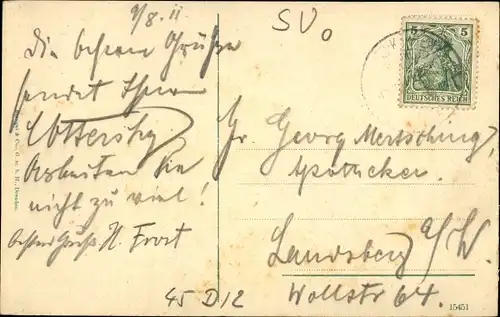 9/8. 11
SV0
Die besten Grüße
sendet Ihnen
Arbeiten Sie
nicht zu viel!
Besten Gruß H. Frost
5 5
DEUTSCHES REICH
Hr. Georg Mertsching,
Apotheker.
Landsberg a/W.
Wollstr 64.
45 D12
15451
& Co., G. m. b. H., Dresden.